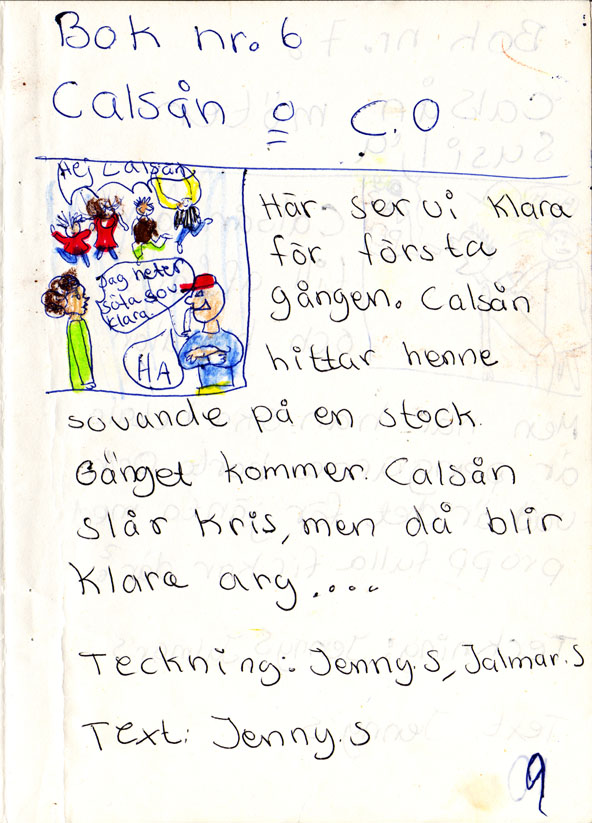 Bok nr. 6
Calsån o C.O
Hej Calsån
Jag heter
söta sov
klara.
HA
Här ser vi Klara
för första
gången. Calsån
hittar henne
sovande på en stock.
Gänget kommer. Calsån
slår Kris, men då blir
Klara arg....
Teckning: Jenny.S, Jalmar.S
Text: Jenny.S
9